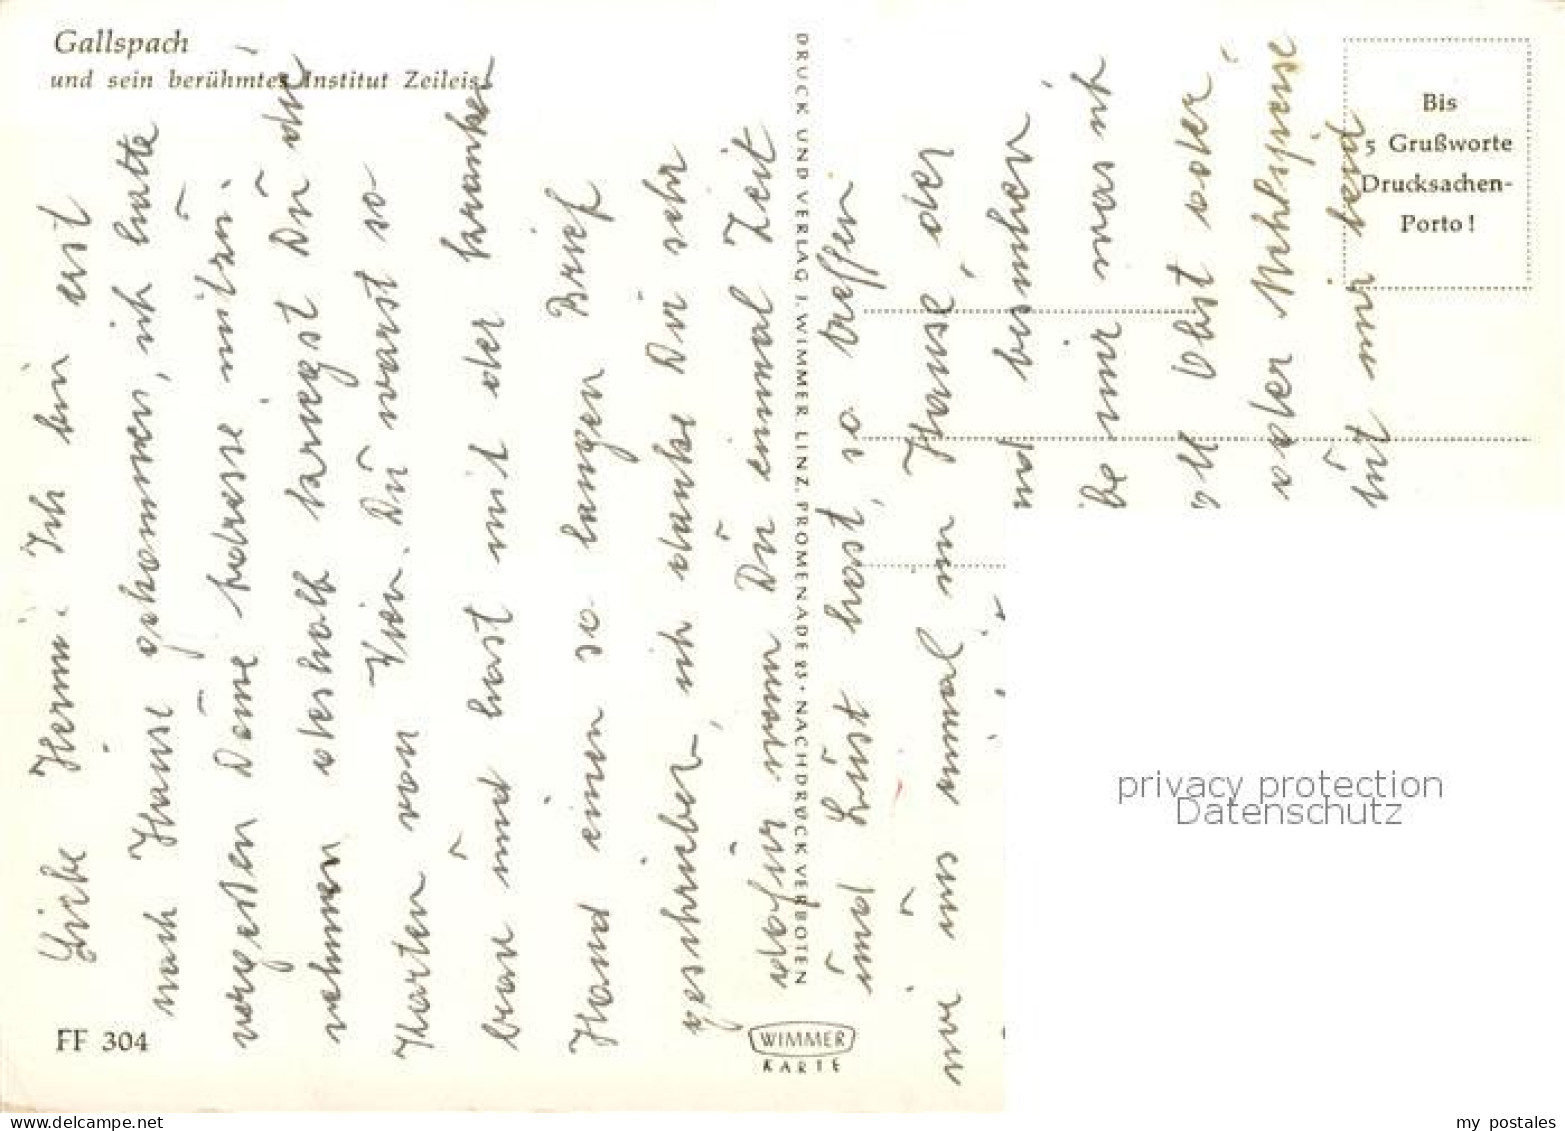 Gallspach
und sein berühmtes Institut Zeileis
Liebe Hermi. Ich bin erst
nach Hause gekommen, ich hatte
vergessen Deine Adresse mitzu-
nehmen deshalb kriegst Du die
Karten von Wien. Du warst so
brav und hast mit der kranken
Hand einen so langen Brief
geschrieben, ich danke Dir sehr
dafür wenn Du einmal Zeit
und Lust hast, so treffen
wir uns einmal in Hause, der
und besuchen
nur was ich
Obst oder
oder Mehlspeise
nur
DRUCK UND VERLAG J. WIMMER, LINZ, PROMENADE 23 • NACHDRUCK VERBOTEN
Bis
5 Grußworte
Drucksachen-
Porto!
FF 304
WIMMER
KARTE
privacy protection
Datenschutz
my postales